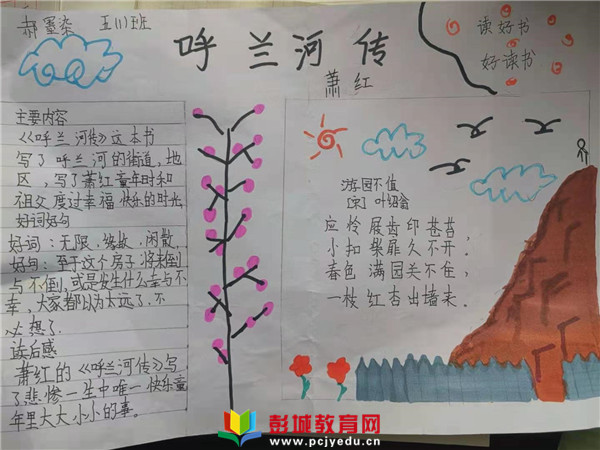 郝墨染 五(1)班
呼兰河传
萧红
读好书
好读书
主要内容
《呼兰河传》这本书
写了呼兰河的街道,地
区,写了萧红童年时和
祖父度过幸福快乐的时光
好词好句
好词:无限、缘故、闲散
好句:至于这个房子将来倒
与不倒,或是发生什么幸与不
幸,大家都以为太远了,不
必想了.
读后感
萧红的《呼兰河传》写
了悲惨一生中唯一快乐童
年里大大小小的事。
游园不值
[宋]叶绍翁
应怜屐齿印苍苔,
小扣柴扉久不开.
春色满园关不住,
一枝红杏出墙来.
彭城教育网
www.pcjyedu.cn